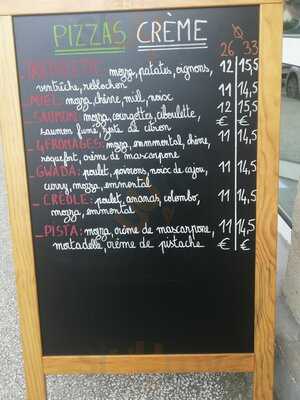 PIZZAS CRÈME
Ø
26 33
_TARTIFLETTE: mozza, patates, oignons, 12 15,5
ventrèche, reblochon
_MIEL: mozza, chèvre, miel, noix 11 14,5
_SAUMON: mozza, courgettes, ciboulette, 12 15,5
saumon fumé, zeste de citron € €
_4FROMAGES: mozza, emmmental, chèvre, 11 14,5
roquefort, crème de mascarpone
_GWADA: poulet, poivrons, noix de cajou, 11 14,5
curry, mozza, emmental
_CREOLE: poulet, ananas, colombo, 11 14,5
mozza, emmental
_PISTA: mozza, crème de mascarpone, 11 14,5
mortadelle, crème de pistache € €